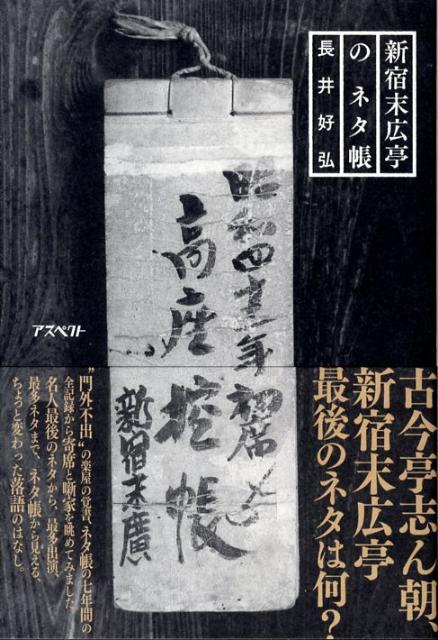 新宿末広亭
の ネタ帳
長井好弘
昭和四十 年 初席
高座控帳
新宿末廣
アスペクト
古今亭志ん朝、
新宿末広亭
最後のネタは何?
"門外不出"の楽屋の秘書、ネタ帳の七年間の
全記録から寄席と噺家を眺めてみました。
名人最後のネタから、最多出演、
最多ネタまで、ネタ帳から見える、
ちょっと変わった落語のはなし。